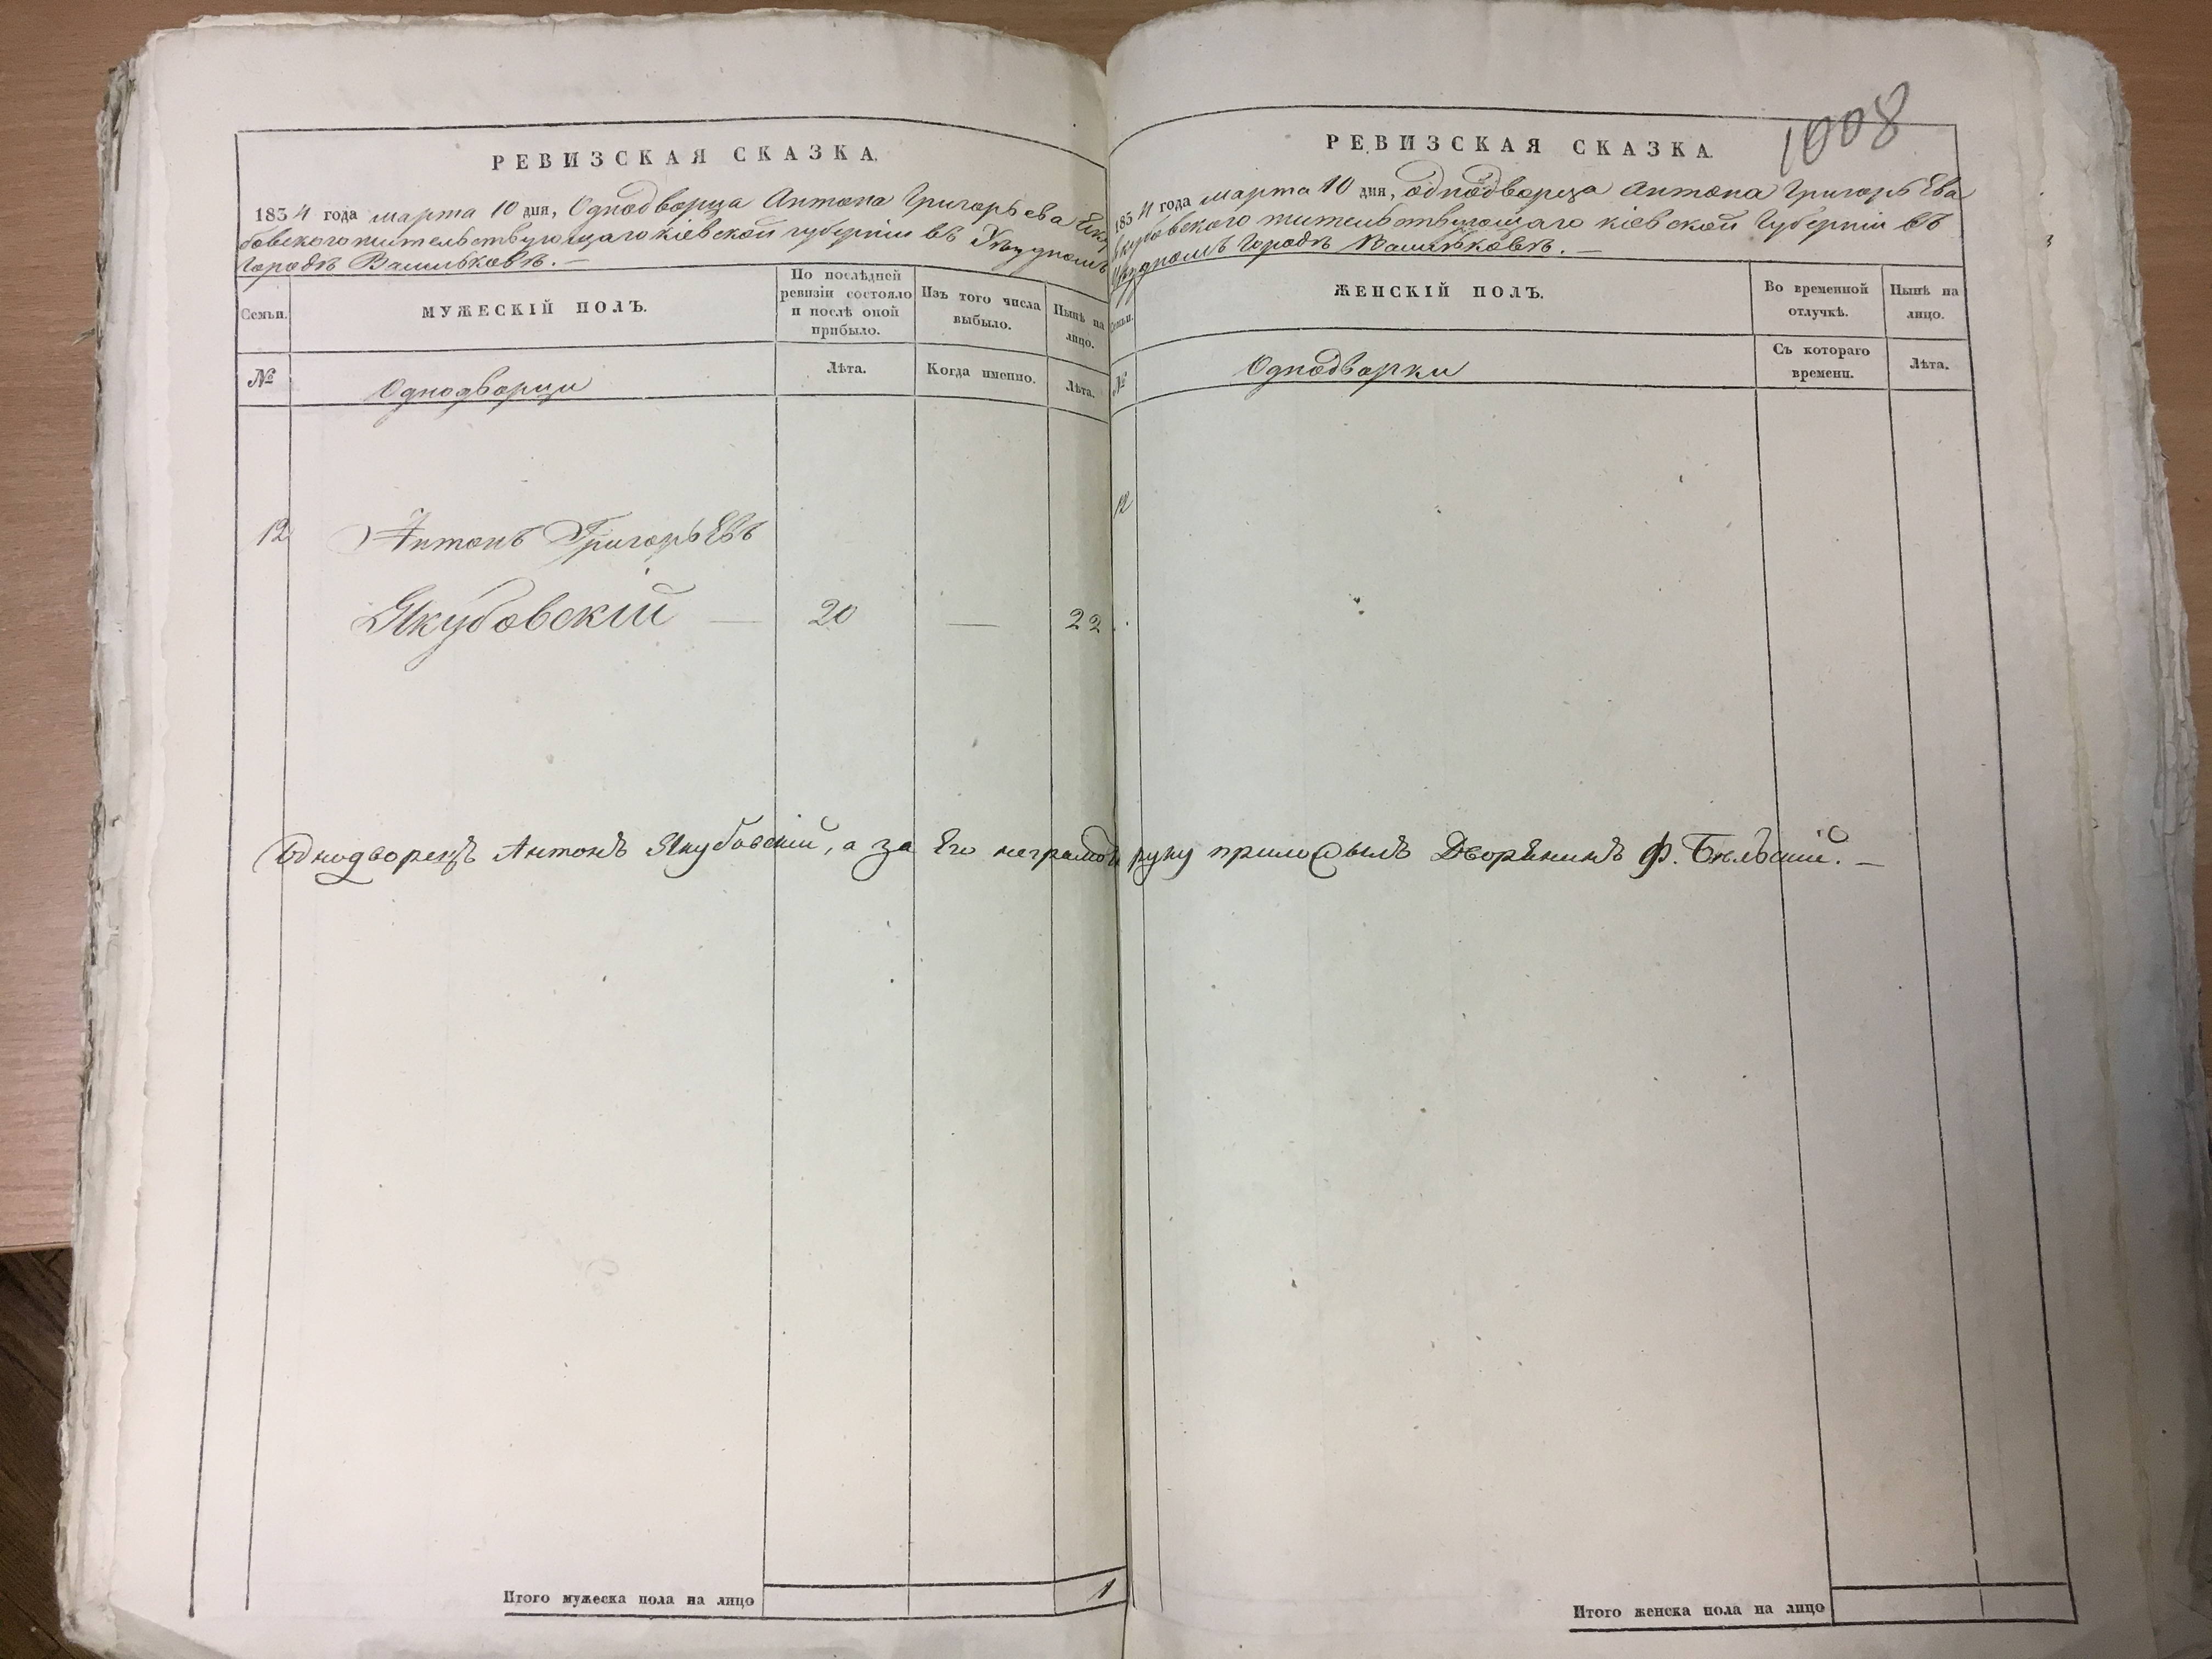 РЕВИЗСКАЯ СКАЗКА.
1834 года марта 10 дня, Однодворца Антона Григорьева Яку
бовского жительствующаго кіевской губерніи въ Уѣздномъ
Городѣ Васильковѣ. —
Семьи.
МУЖЕСКІЙ ПОЛЪ.
По послѣдней
ревизіи состояло
и послѣ оной
прибыло.
Изъ того числа
выбыло.
Нынѣ на
лицо.
№
Однодворци
Лѣта.
Когда именно.
Лѣта.
12
Антонъ Григорьевъ
Якубовскій — 20 — 22
Итого мужеска пола на лицо 1
1008
РЕВИЗСКАЯ СКАЗКА.
1834 года марта 10 дня, однодворца Антона Григорьева
Якубовского жительствующаго кіевской Губерніи въ
Уѣздномъ Городѣ Васильковѣ. —
Семьи.
ЖЕНСКІЙ ПОЛЪ.
Во временной
отлучкѣ.
Нынѣ на
лицо.
№
Однодворки
Съ котораго
времени.
Лѣта.
12
Однодворецъ Антонъ Якубовскій, а за Его неграмот руку приложилъ Дворянинъ Ф. Бѣльскій. —
Итого женска пола на лицо